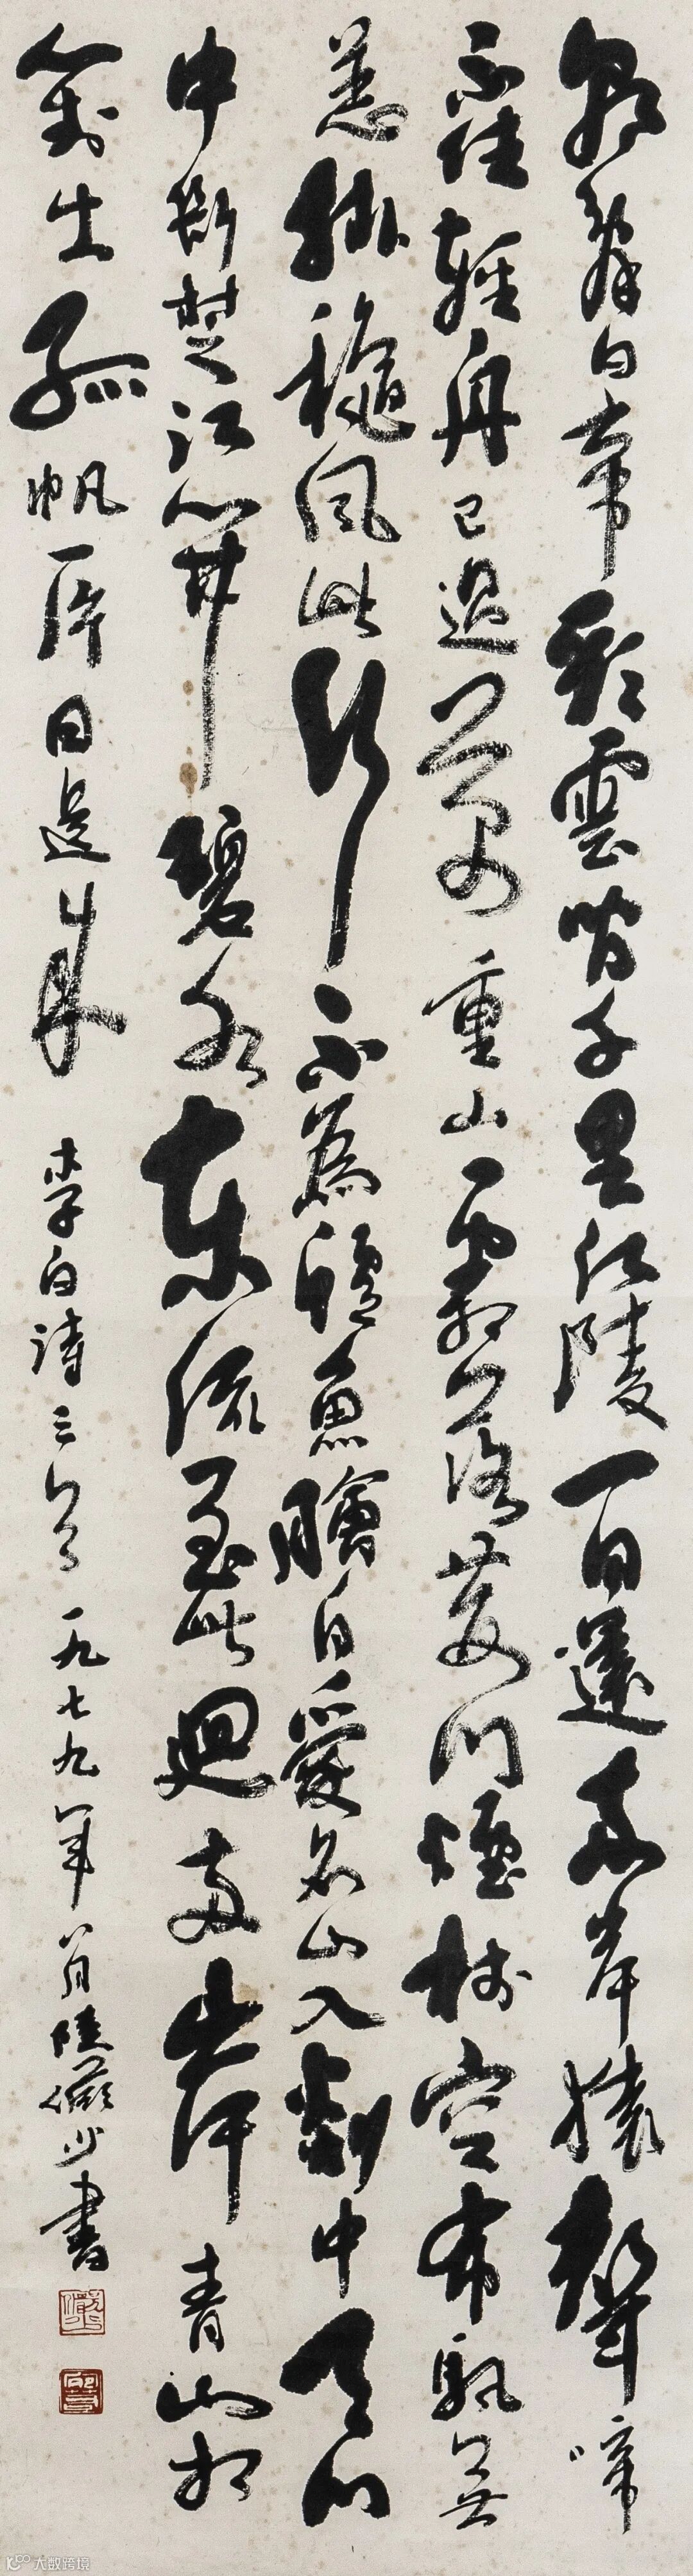 朝辭白帝彩雲間千里江陵一日還兩岸猿聲啼
不住輕舟已過萬重山霜落荊門煙樹空布帆無
恙掛穐風此行不為鱸魚膾自愛名山入剡中天門
中斷楚江開碧水東流至此迴兩岸青山相
對出孤帆一片日邊來 李白詩三首 一九七九年八月陸儼少書
大数跨境